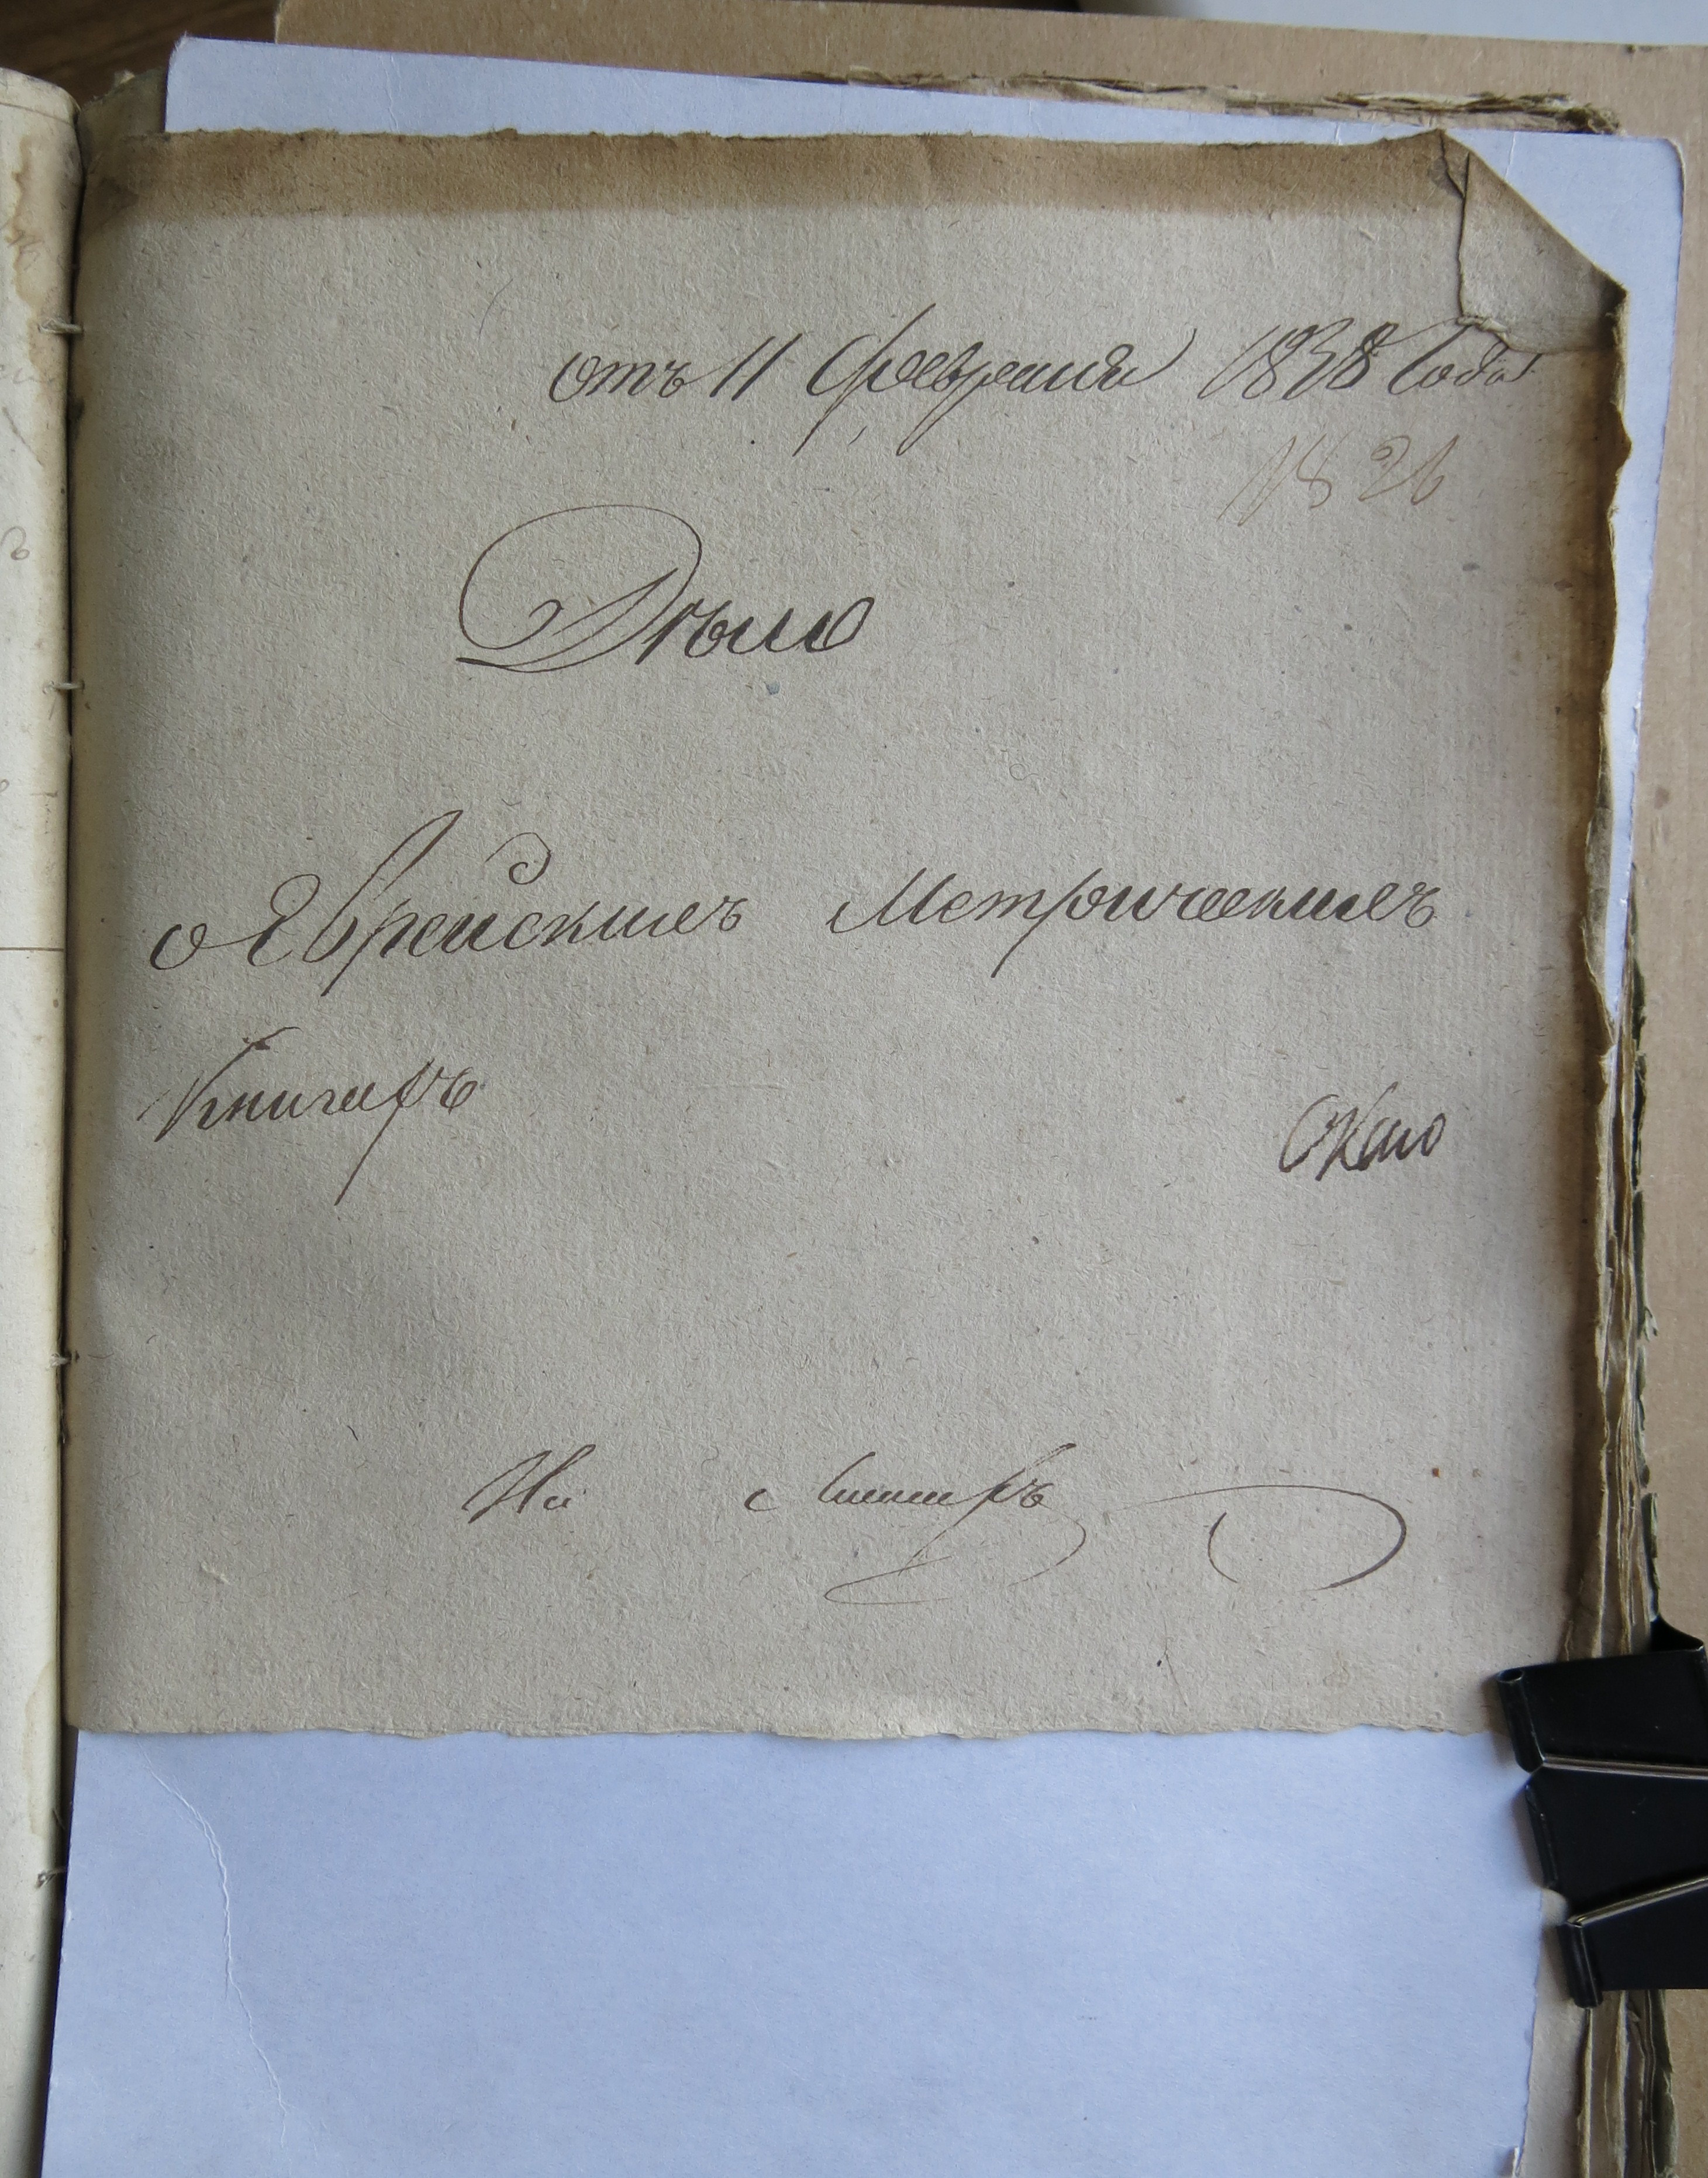 отъ 11 февраля 1838 Года
Дѣло
о Еврейскихъ Метрическихъ
Книгахъ
На листахъ